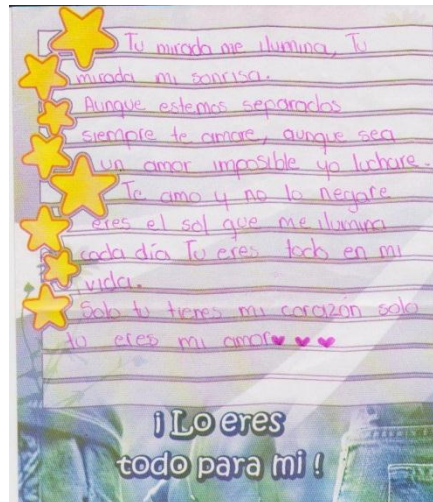 Tu mirada me ilumina, Tu
mirada mi sonrisa.
Aunque estemos separados
siempre te amare, aunque sea
un amor imposible yo luchare.
Te amo y no lo negare
eres el sol que me ilumina
cada día Tu eres todo en mi
vida.
Solo tu tienes mi corazón solo
tu eres mi amor
¡Lo eres
todo para mi!